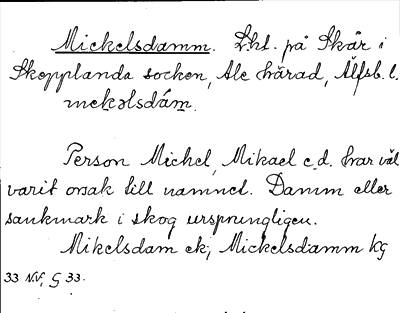 Mickelsdamm. Lht. på Skår i
Skepplanda socken, Ale härad, Älfsb. l.
mekəlsdám.
Person Michel, Mikael e.d. har väl
varit orsak till namnet. Damm eller
sankmark i skog ursprungligen.
Mikelsdam ek; Mickelsdamm kg
33 NV, G 33.